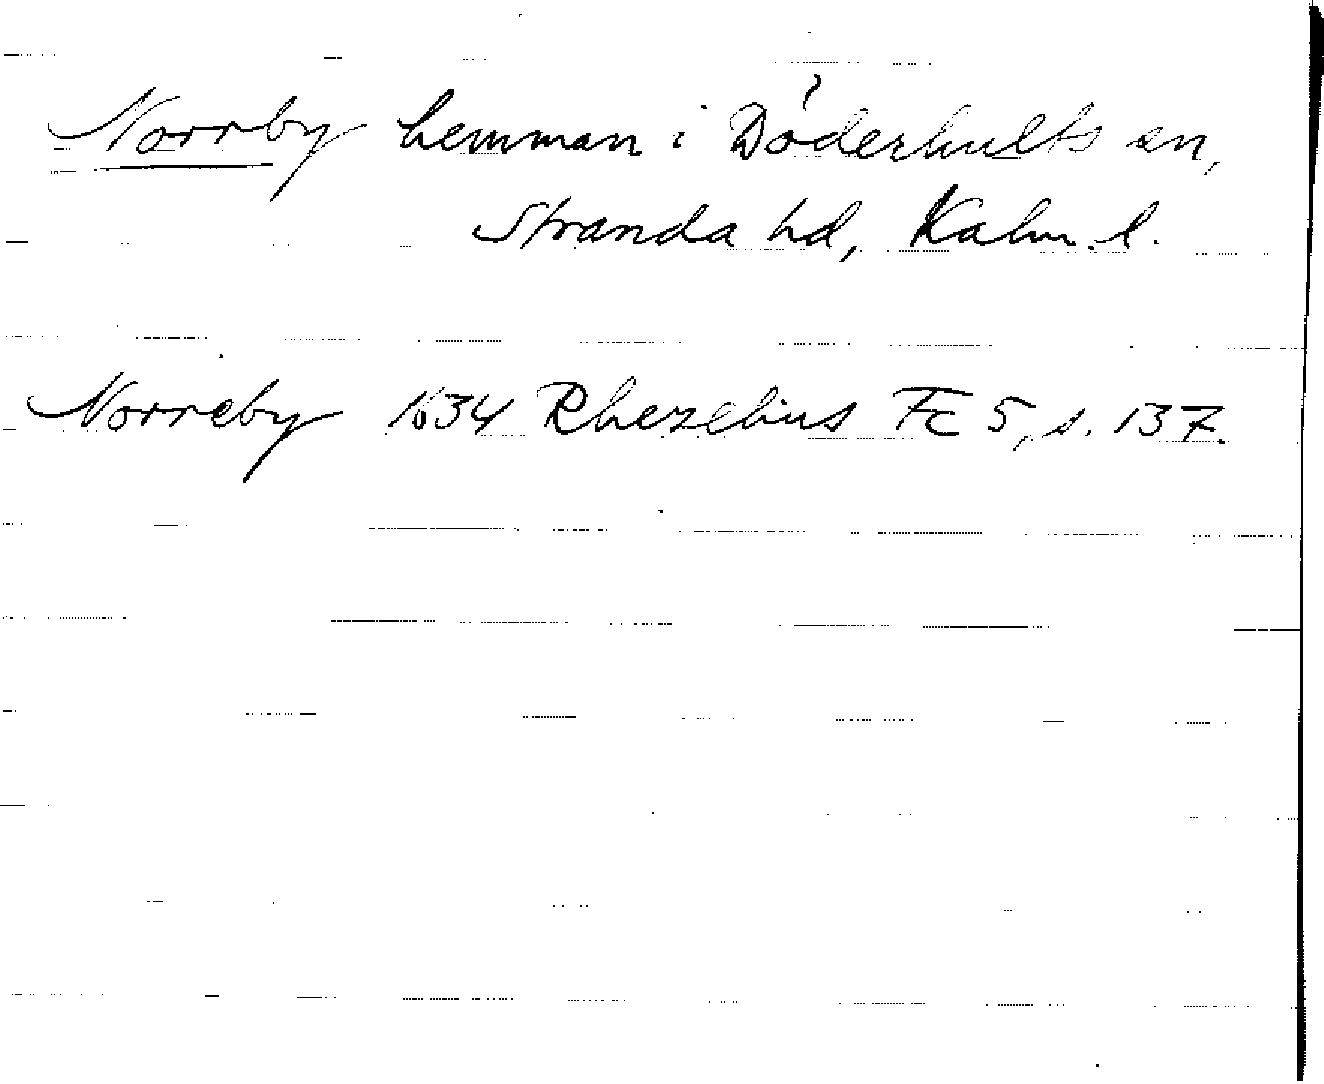 Norrby hemman i Döderhults sn,
Stranda hd, Kalm. l.
Norreby 1634 Rhezelius Fc 5, s. 137.